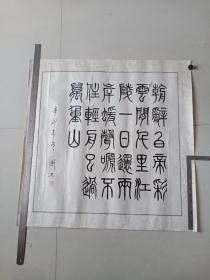 朝辭白帝彩
雲間千里江
陵一日還兩
岸猨聲嗁不
住輕舟已過
萬重山